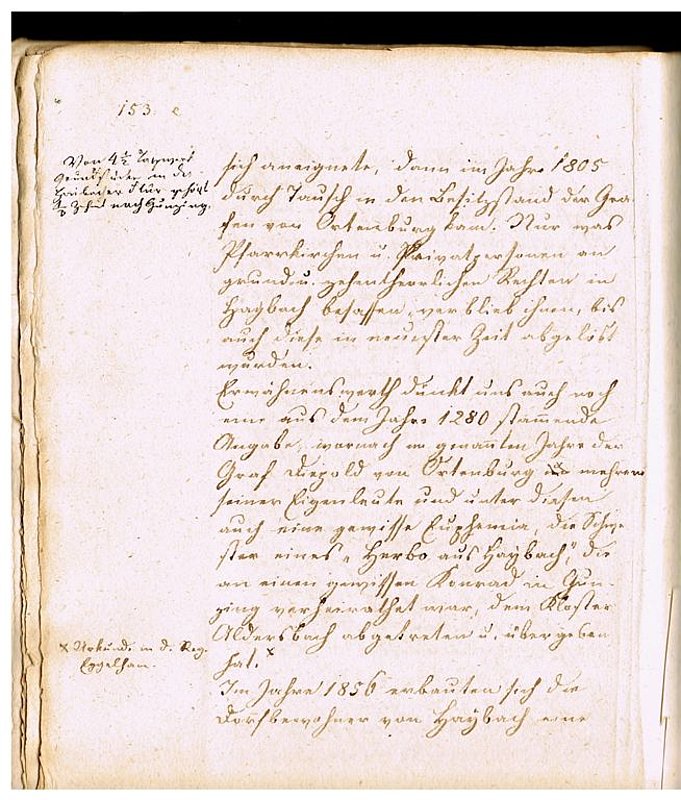 153. e
Von 4 ½ Tagwerk
Grundstücken in der
Haibacher Flur gehört
½ Zehent nach Gunzing.
sich aneignete, dann im Jahre 1805
durch Tausch in den Besitzstand der Gra-
fen von Ortenburg kam. Nur was
Pfarrkirchen u. Privatpersonen an
grund- u. zehentherrlichen Rechten in
Haybach besassen, verblieb ihnen, bis
auch diese in neuester Zeit abgelöst
wurden.
Erwähnenswerth dünkt uns auch noch
eine aus dem Jahre 1280 stammende
Angabe, wornach im genannten Jahre der
Graf Diepold von Ortenburg mehrere
seiner Eigenleute und unter diesen
auch eine gewisse Euphemia, die Schwe-
ster eines „Herbo aus Haybach", die
an einen gewissen Konrad in Gun-
zing verheirathet war, dem Kloster
Aldersbach abgetreten u. übergeben
hat. x
x Urkunde in d. Reg.
Eggelham.
Im Jahre 1856 erbauten sich die
Dorfbewohner von Haybach eine